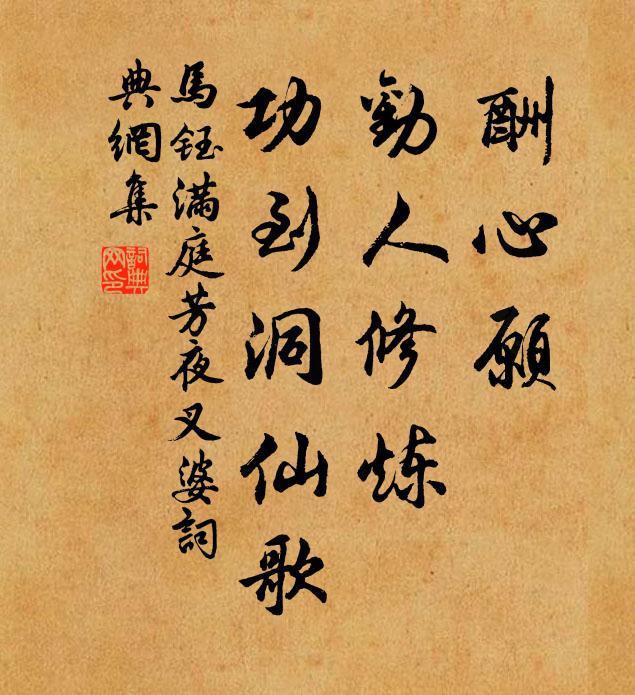 酬心願
勸人修炼
功到洞仙歌
馬鈺满庭芳夜叉婆詞
典網集
詞典網印